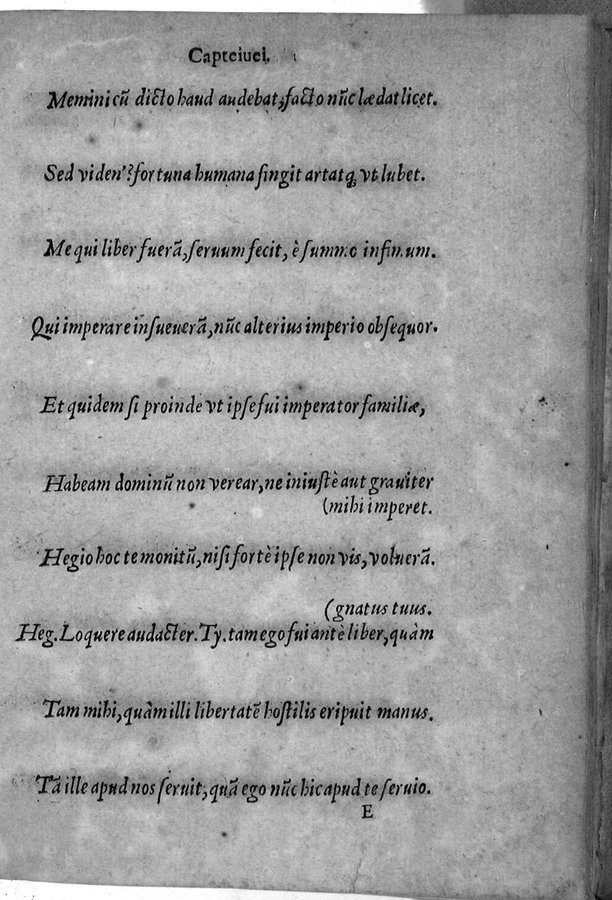 Capteiuei.
Memini cū dicto haud audebat, facto nūc lædat licet.
Sed viden'? fortuna humana fingit artatq; vt lubet.
Me qui liber fuerā, seruum fecit, è summo infimum.
Qui imperare insueuerā, nūc alterius imperio obsequor.
Et quidem si proinde vt ipse fui imperator familiæ,
Habeam dominū non verear, ne iniustè aut grauiter
(mihi imperet.
Hegio hoc te monitū, nisi fortè ipse non vis, voluerā.
(gnatus tuus.
Heg. Loquere audacter. Ty. tam ego fui antè liber, quàm
Tam mihi, quàm illi libertatē hostilis eripuit manus.
Tā ille apud nos seruit, quā ego nūc hic apud te seruio.
E